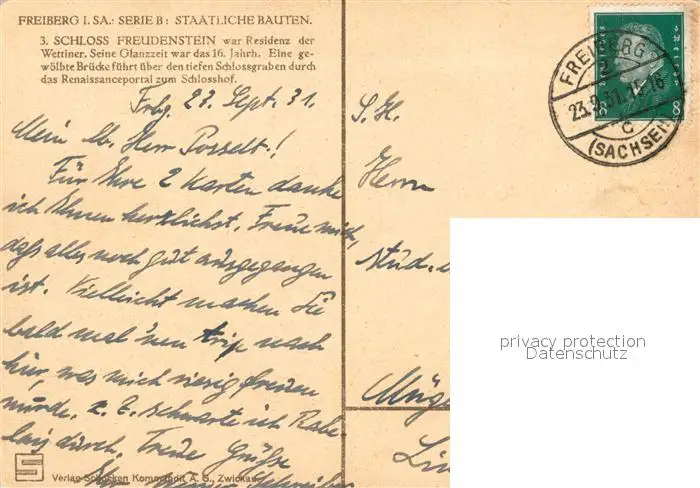 FREIBERG I. SA.: SERIE B: STAATLICHE BAUTEN.
3. SCHLOSS FREUDENSTEIN war Residenz der
Wettiner. Seine Glanzzeit war das 16. Jahrh. Eine ge-
wölbte Brücke führt über den tiefen Schlossgraben durch
das Renaissanceportal zum Schlosshof.
Frbg. 23. Sept. 31.
Mein lb. Herr Posselt!
Für Ihre 2 Karten danke
ich Ihnen herzlichst. Freue mich,
daß alles noch gut ausgegangen
ist. Vielleicht machen Sie
bald mal 'nen trip nach
hier, was mich riesig freuen
würde. z. Z. schwarte ich Rabe
lais durch. Treue Grüße
Verlag Schocken Kommandit A. G., Zwickau
S. H.
Herrn
stud.
Müg
Lin
FREIBERG
2
23.9.31.15-16
c
(SACHSEN)
8
8
privacy protection
Datenschutz